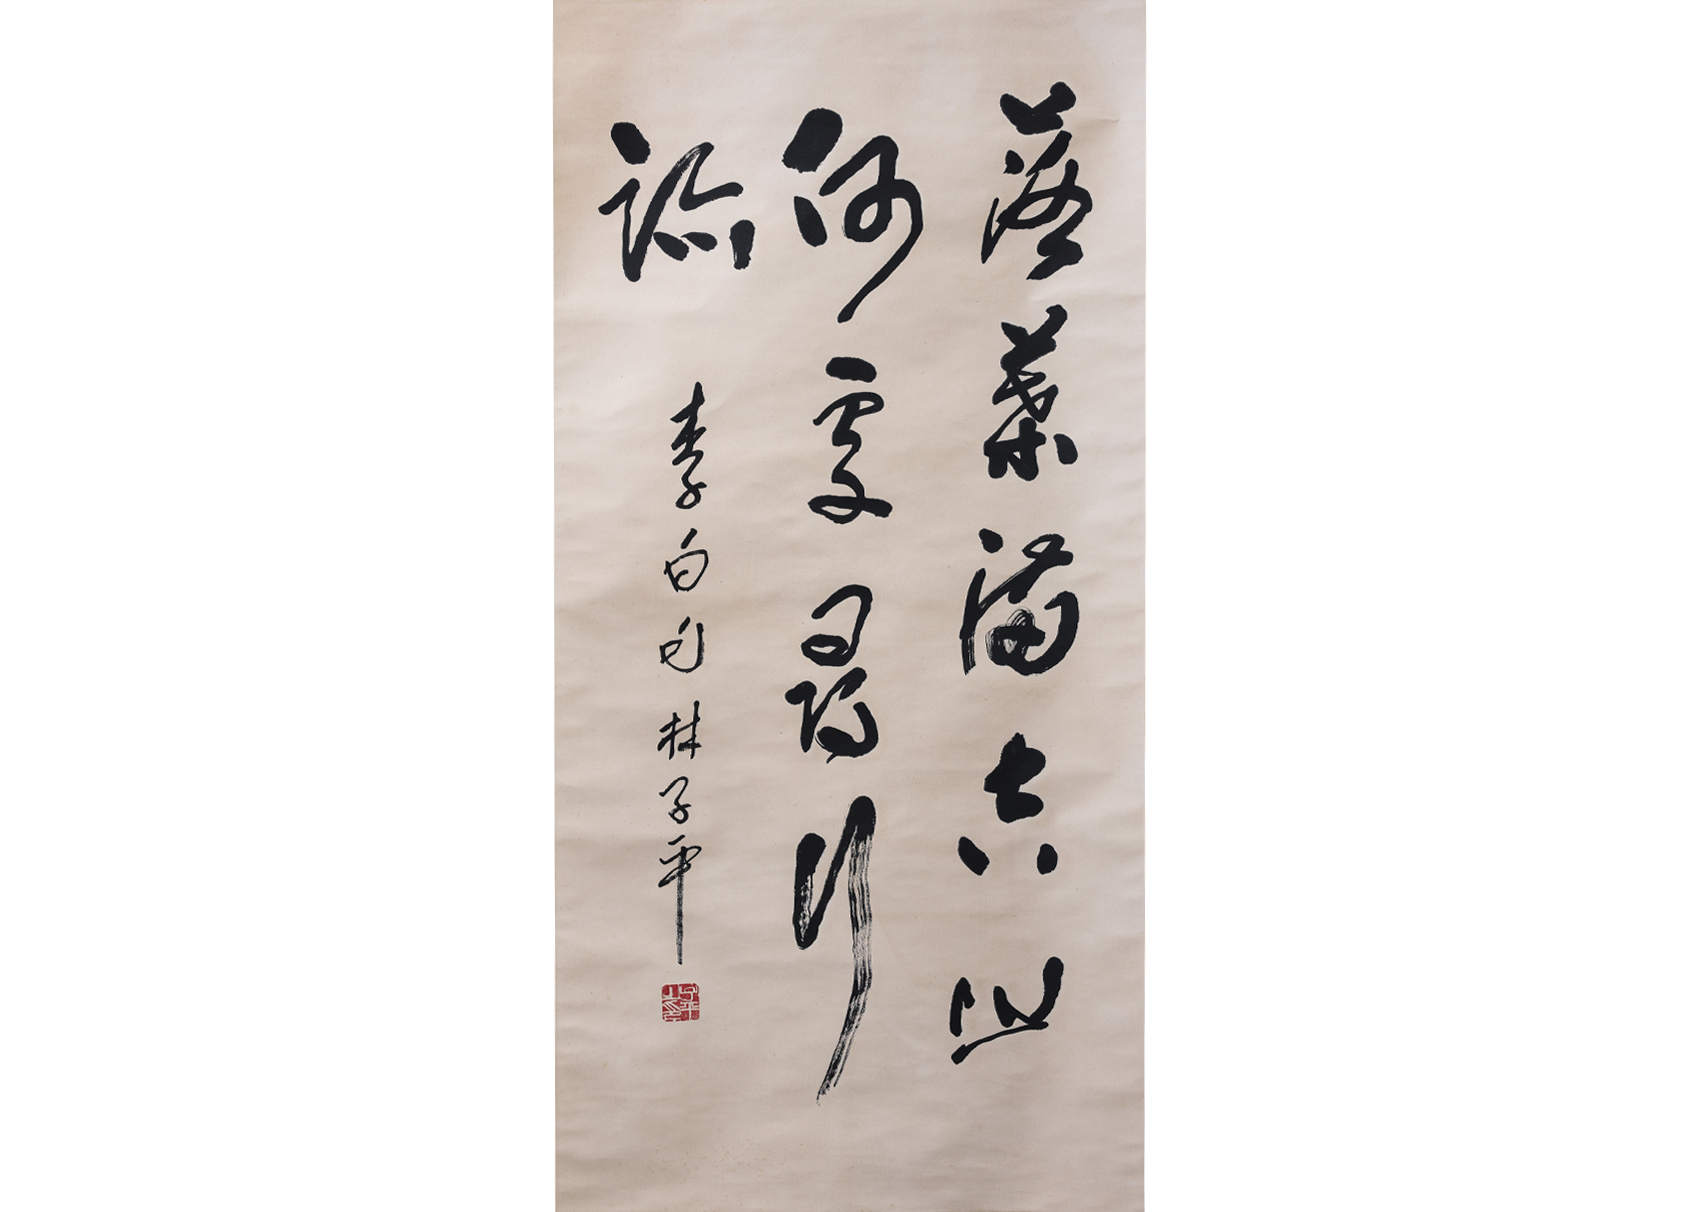 落葉滿空山
何處尋行
跡
李白句 林子平